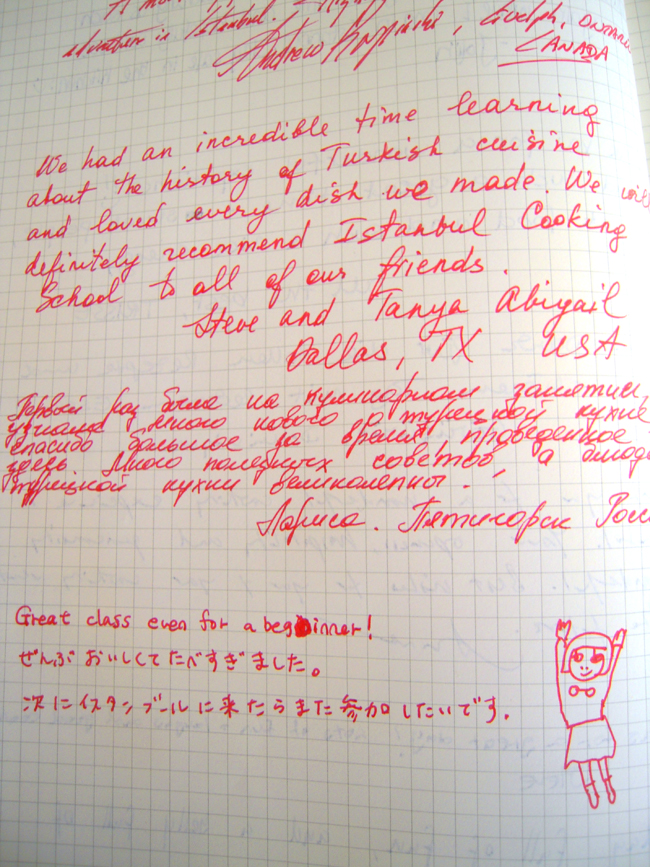 A most
adventure in Istanbul.
Andrew , Guelph, ONTARIO
CANADA
We had an incredible time learning
about the history of Turkish cuisine
and loved every dish we made. We will
definitely recommend Istanbul Cooking
School to all of our friends.
Steve and Tanya Abigail
Dallas, TX USA
Первый раз была на кулинарном занятии,
узнала много нового о турецкой кухне
спасибо большое за время проведенное
здесь. Много полезных советов, а блюда
турецкой кухни великолепны.
Лариса. Пятигорск Росс
Great class even for a beginner!
ぜんぶおいしくてたべすぎました。
次にイスタンブールに来たらまた参加したいです。